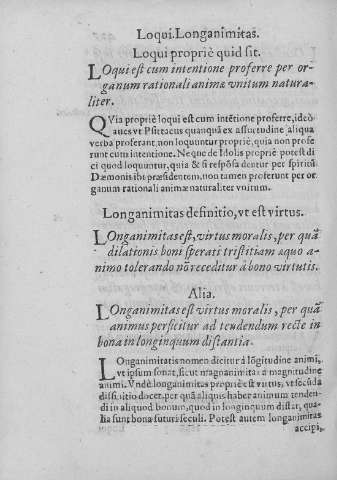 Loqui. Longanimitas.
Loqui propriè quid sit.
LOqui est cum intentione proferre per or-
ganum rationali animæ vnitum natura-
liter.
QVia propriè loqui est cum intētione proferre, ideò
aues vt Psittacus quanquā ex assuetudine aliqua
verba proferant, non loquuntur propriè, quia non profe
runt cum intentione. Neque de Idolis propriè potest di
ci quod loquuntur, quia & si responsa dentur per spiritū
Dæmonis ibi præsidentem, non tamen proferunt per or
ganum rationali animæ naturaliter vnitum.
Longanimitas definitio, vt est virtus.
LOnganimitas est, virtus moralis, per quā
dilationis boni sperati tristitiam æquo a-
nimo tolerando nō receditur à bono virtutis.
Alia.
LOnganimitas est virtus moralis, per quā
animus perficitur ad tendendum recte in
bona in longinquum distantia.
LOnganimitatis nomen dicitur à lōgitudine animi,
vt ipsum sonat, sicut magnanimitas à magnitudine
animi. Vndè longanimitas propriè est virtus, vt secūda
diffinitio docet, per quā aliquis haber animum tenden-
di in aliquod bonum, quod in longinquum distat, qua-
lia sunt bona futuri seculi. Potest autem longanimitas
accipi,